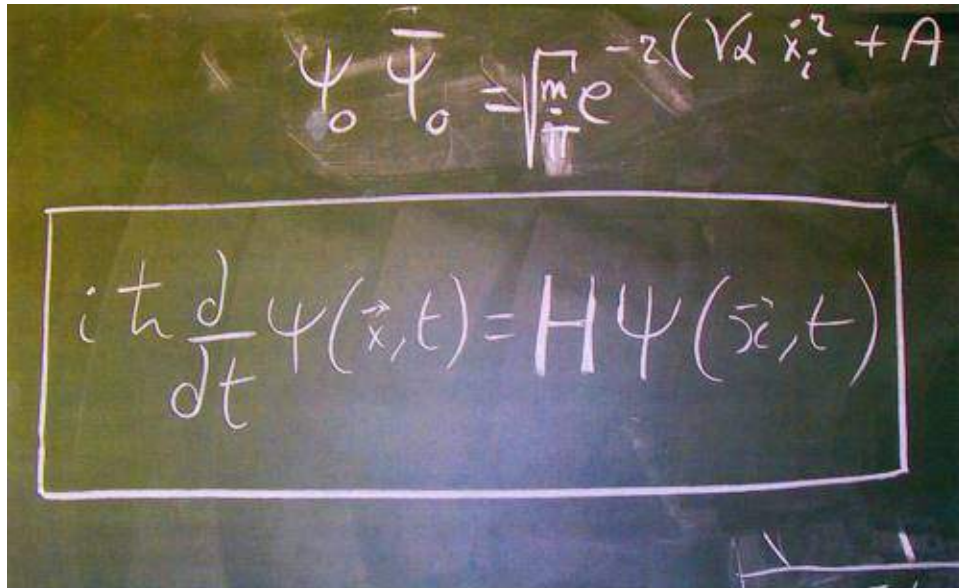 ψ₀ ψ̄₀ = √(m/π) e^{-2(√α ẋᵢ² + A
iħ d/dt ψ(x⃗,t) = H ψ(x⃗,t)